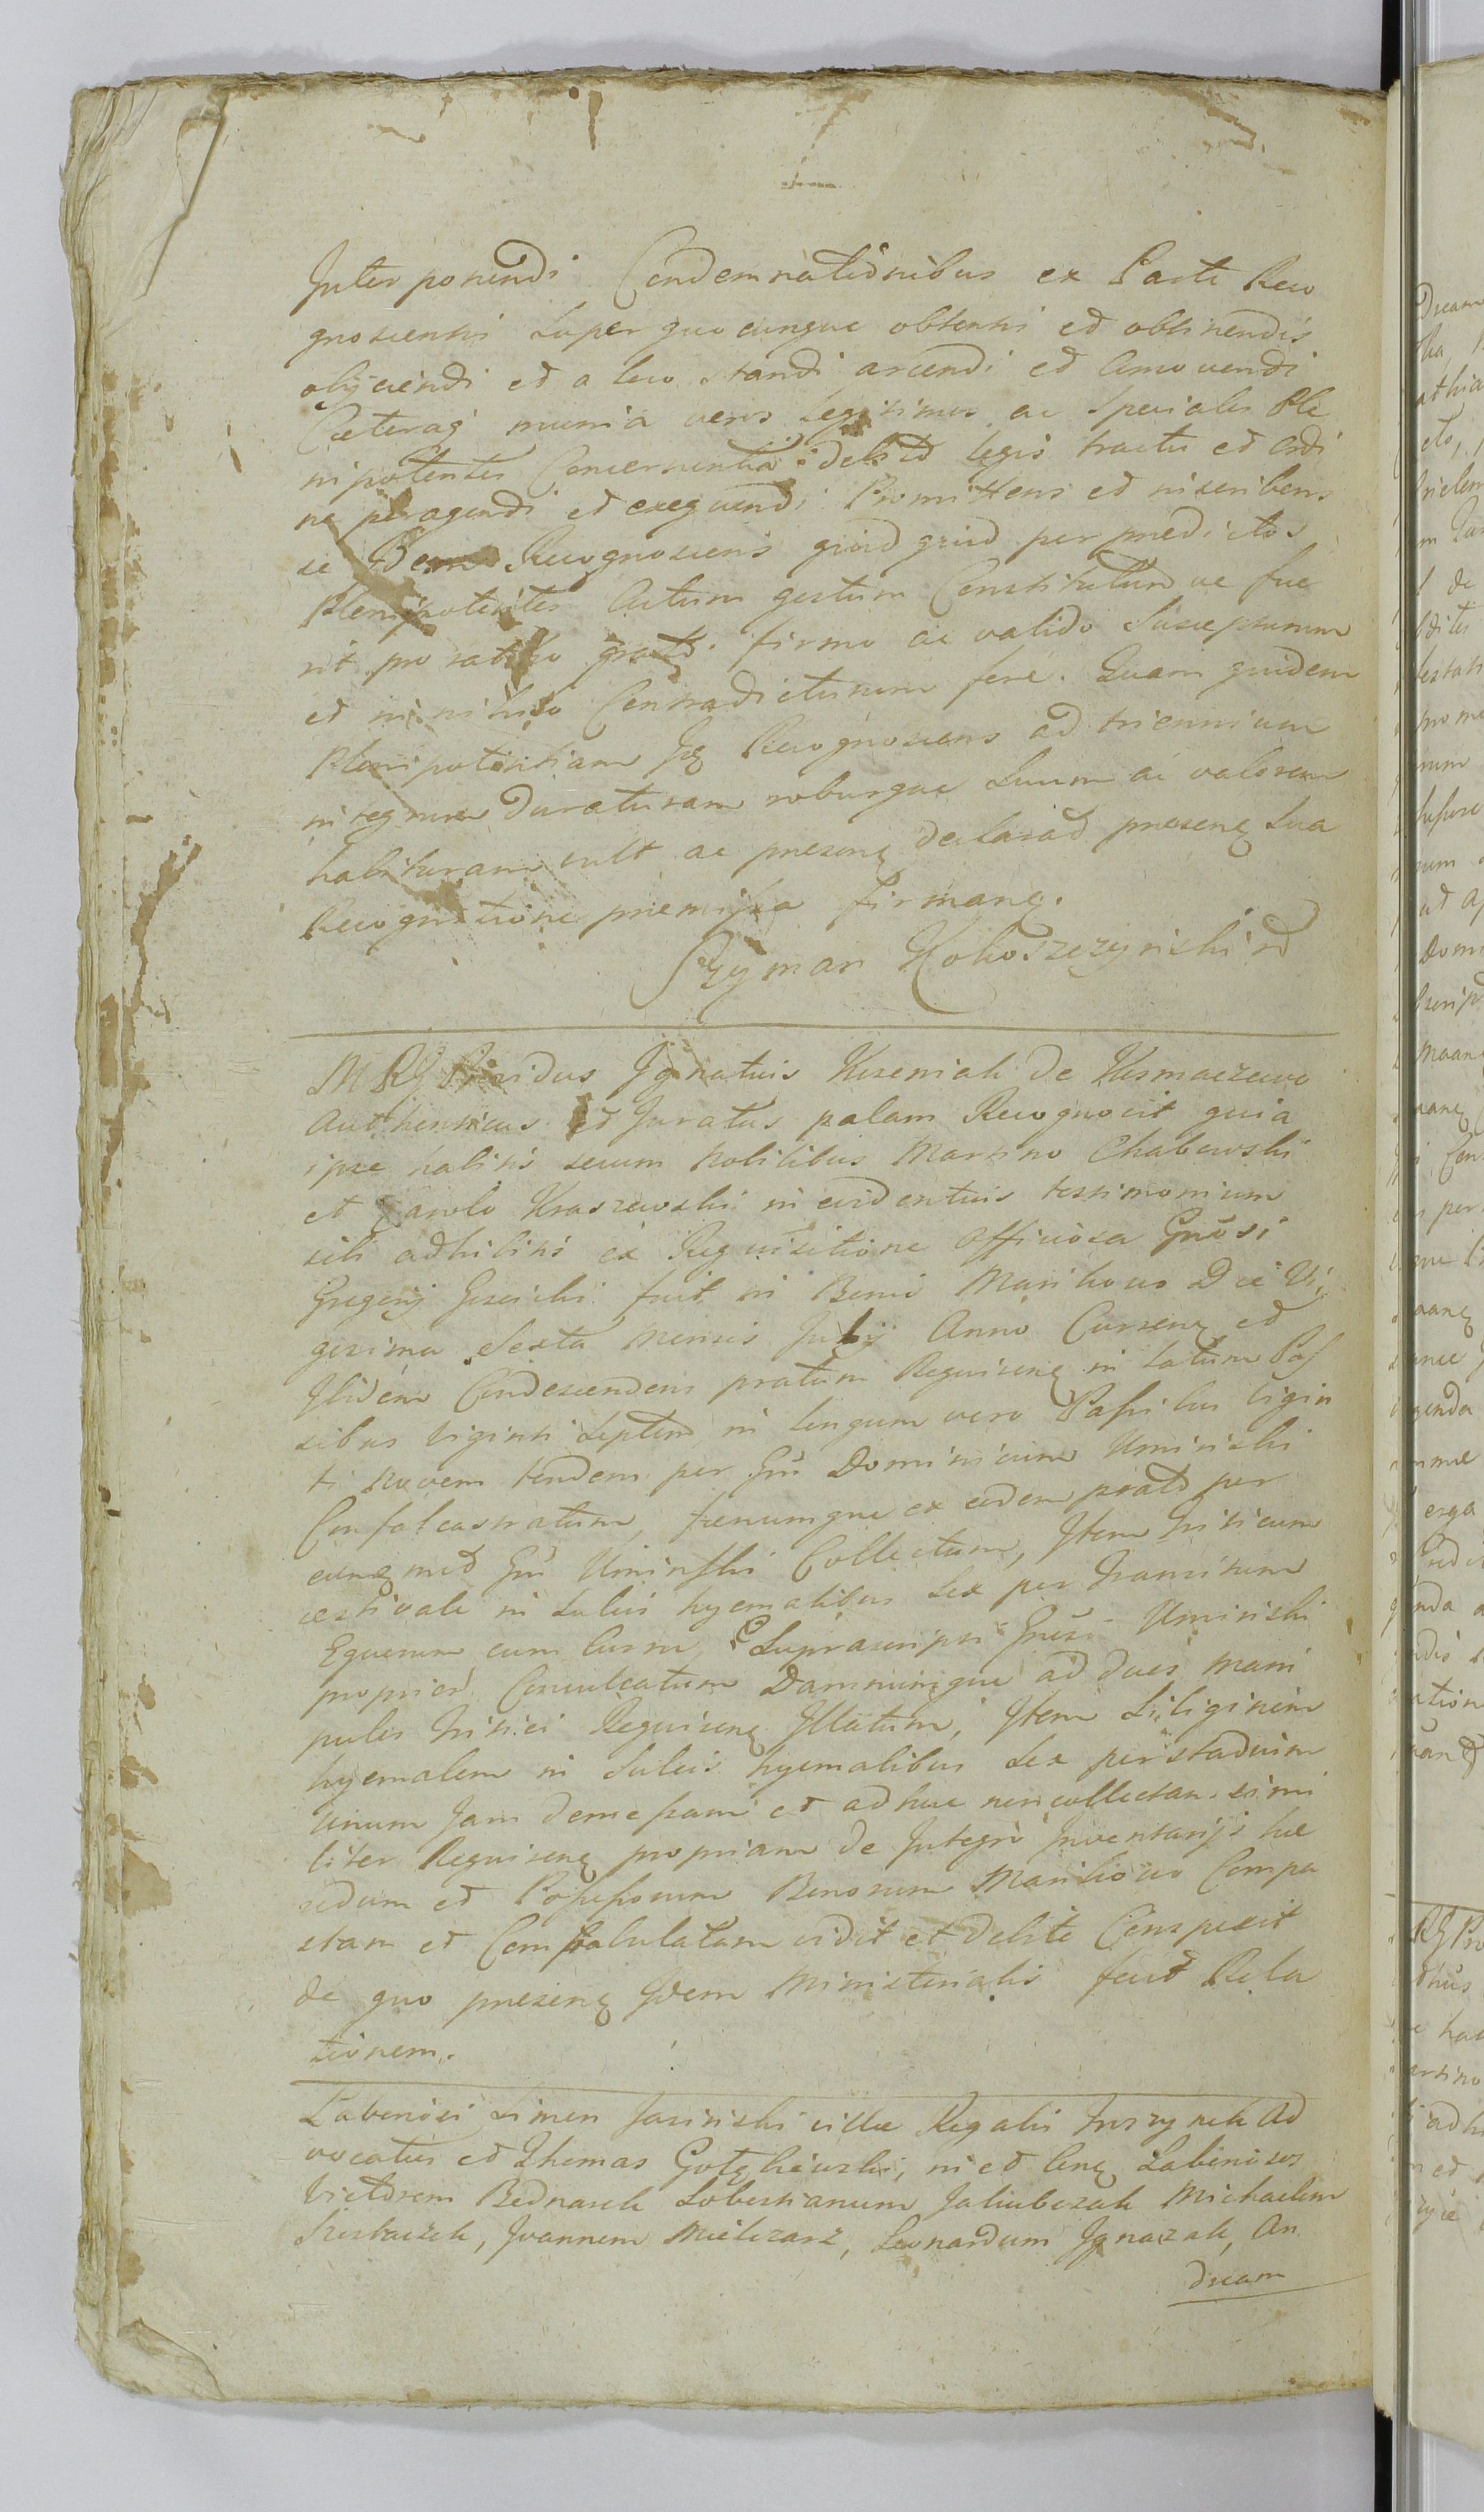 Interponendi Condemnationibus ex Parte Reco
gnoscentis super quocunque obtentis et obtinendis
obijciendi et a loco standi arcendi et amovendi
Caeteraq munia veros legitimos ac speciales Ple
nipotentes Concernentia debito legis tractu et ordi
ne peragendi et exequendi Promittens et inscribens
se Idem Recognoscens quid quid per praedictos
Plenipotentes Actum gestum Constitutum ve fue
rit pro rato grato firmo ac valido Suscepturum
et in nihilo Contradicturum fore. Quam quidem
Plenipotentiam Idq Recognoscens ad triennium
integrum Duraturam roburque Suum ac valorem
habituram vult ac presenq declarat presenq Sua
Recognitione premissa firmanq.
Szyman Kokoszczyński rd
M RG Providus Ignatius Kuzeniak de Kusmaczewo
Authenticus et Juratus palam Recognovit quia
ipse habitis secum Nobilibus Martino Chabowski
et Carolo Kraszewski in evidentius testimonium
sibi adhibitis ex Requisitione Officiosa Gnosi
Gregorij Jezicki fuit in Bonis Manikowo Die Vi
gesima Sexta Mensis Julij Anno Currenq et
Ibidem Condescendens pratum Requirenq in latum Pas
sibus viginti Septem, in longum vero Passibus vigin
ti Novem tendens per Gm Dominicum Uminski
Confalcastratum, fenumque ex eodem prato per
eunqmet Gm Uminski Collectum, Item Triticum
aestivale in Sulcis hyemalibus Sex per Transitum
Equorum cum Curru Suprascripti Gnosi Uminski
proprior Conculcatum Damnumque ad duos mani
pulos Tritici Requirenq Illatum, Item Siliginem
hyemalem in Sulcis hyemalibus Sex per stadium
unum Jam demessam et adhuc non collectam simi
liter Requirenq propriam de Integro Inventarijs hae
redum et Possessorum Bonorum Manikowo Compa
stam et Compabulatam vidit et debite Conspexit
de quo presenq Idem Ministerialis fecit Rela
tionem.
Laboriosi Simon Jasinski villae Regalis Ad
vocatus et Thomas Gotękiewski, in et conq Laboriosos
Victorem Bednarek Sobestianum Jakubczak Michaelem
Szostaczek, Joannem Mielcarz, Leonardum Ignaczak, An
dream